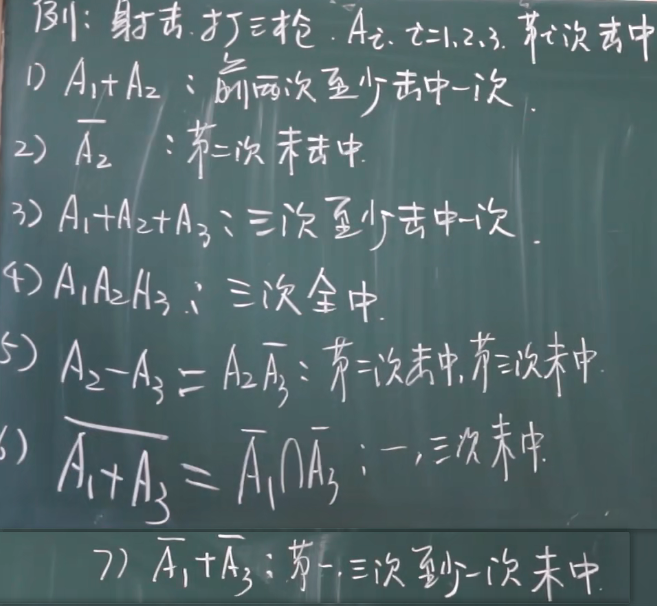 例:射击.打三枪.Aᵢ.i=1,2,3.第i次击中
1) A₁+A₂:前两次至少击中一次.
2) A̅₂:第二次未击中.
3) A₁+A₂+A₃:三次至少击中一次.
4) A₁A₂A₃:三次全中.
5) A₂-A₃=A₂A̅₃:第二次击中,第三次未中.
6) \overline{A₁+A₃}=A̅₁∩A̅₃:一,三次未中.
7) A̅₁+A̅₃:第一.三次至少一次未中.